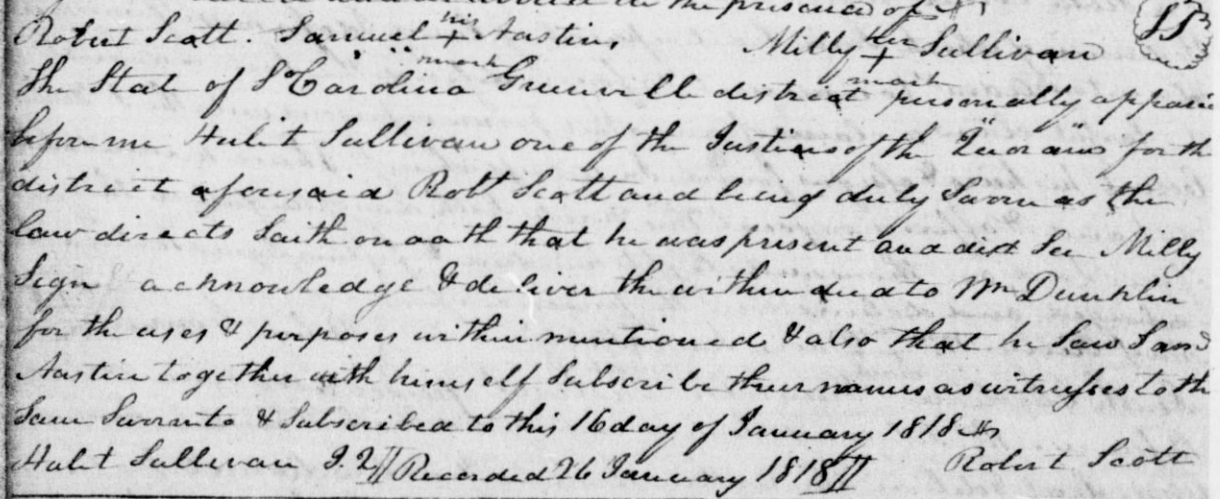 in the presence of
Robert Scott. Samuel his + mark Nastin, Milly her + mark Sullivan
The State of So Carolina Greenville district personally appeared
before me Hulet Sullivan one of the Justices of the Quoram for the
district aforesaid Robt Scott and being duly Sworn as the
law directs Saith on oath that he was present and did See Milly
Sign acknowledge & deliver the within deed to Wm Dunklin
for the uses & purposes within mentioned & also that he Saw Saml
Nastin together with himself Subscribe their names as witnesses to the
Same Sworn to & Subscribed to this 16 day of January 1818
Hulet Sullivan J.Q || Recorded 26 January 1818 || Robert Scott